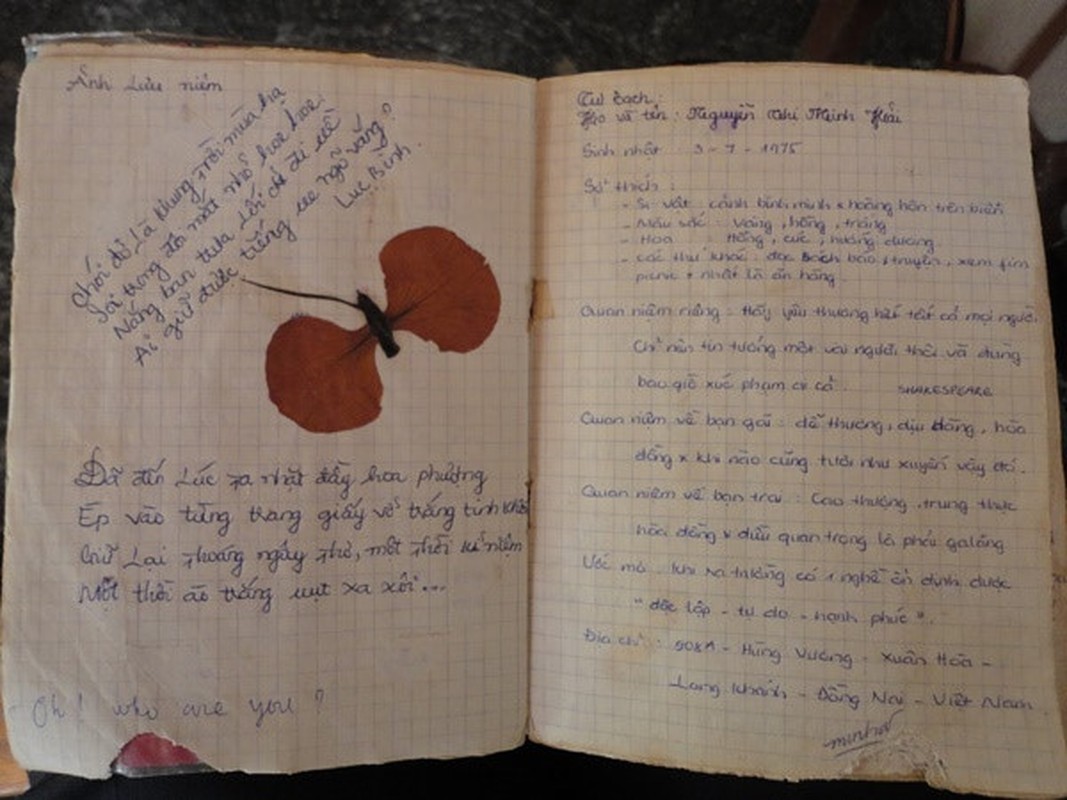 Ảnh Lưu niệm
Chói đỏ Là khung trời mùa hạ
Tôi trong đôi mắt nhỏ hoe hoe
Nắng ban trưa Lối cũ đi về
Ai giữ được tiếng ve ngỡ vắng?
Lục Bình.
Đã đến Lúc ra nhặt đầy hoa phượng
Ép vào từng trang giấy vở trắng tinh khôi
Giữ Lại thoáng ngây thơ, một thời kỉ niệm
Một thời áo trắng vụt xa xôi...
Oh! who are you?
Tự bạch:
Họ và tên: Nguyễn Thị Minh Hải
Sinh nhật: 3-7-1975
Sở thích:
- Sự vật: cảnh bình minh & hoàng hôn trên biển
- Màu sắc: vàng, hồng, trắng
- Hoa hồng, cúc, hướng dương
- Các thứ khác: đọc sách báo & truyện, xem fim
picnic & nhất là ăn hàng.
Quan niệm riêng: Hãy yêu thương hết tất cả mọi người
Chỉ nên tin tưởng một vài người thôi và đừng
bao giờ xúc phạm cả. SHAKESPEARE
Quan niệm về bạn gái: dễ thương, dịu dàng, hòa
đồng & khi nào cũng tươi như xuyến vậy đó.
Quan niệm về bạn trai: Cao thượng, trung thực
hòa đồng & điều quan trọng là phải galăng
Ước mơ: khi ra trường có 1 nghề ổn định được
"độc lập - tự do - hạnh phúc".
Địa chỉ: 508A - Hùng Vương - Xuân Hòa -
Long Khánh - Đồng Nai - Việt Nam